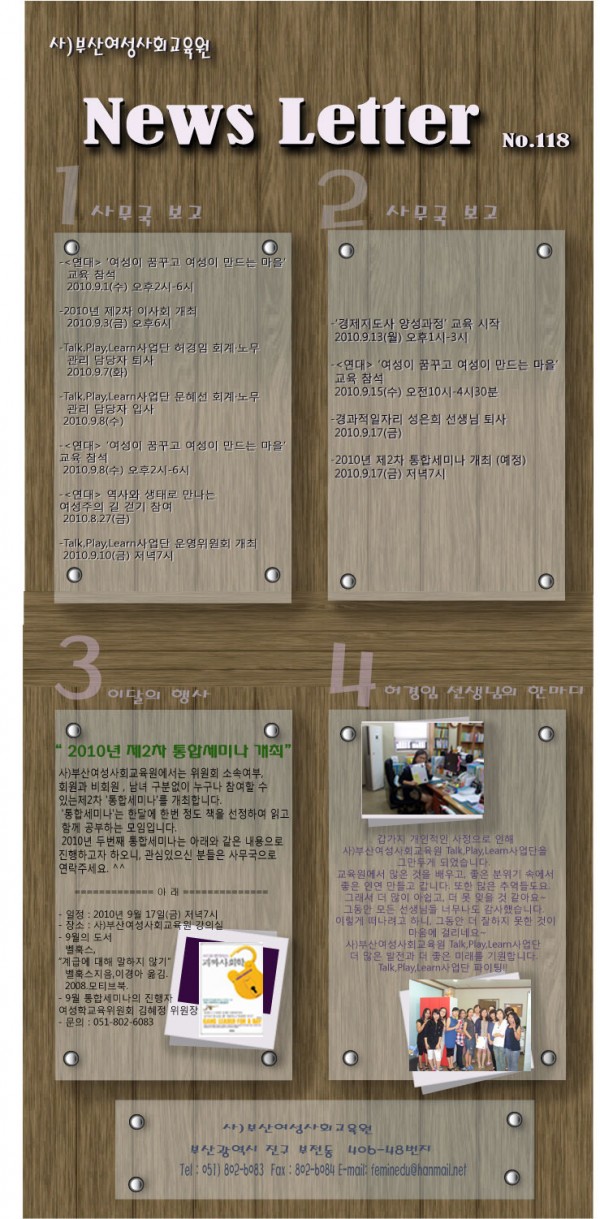 사)부산여성사회교육원
News Letter No.118
1 사무국 보고
-<연대> '여성이 꿈꾸고 여성이 만드는 마을'
교육 참석
2010.9.1(수) 오후2시-6시
-2010년 제2차 이사회 개최
2010.9.3(금) 오후6시
-Talk,Play,Learn사업단 허경임 회계·노무
관리 담당자 퇴사
2010.9.7(화)
-Talk,Play,Learn사업단 문혜선 회계·노무
관리 담당자 입사
2010.9.8(수)
-<연대> '여성이 꿈꾸고 여성이 만드는 마을'
교육 참석
2010.9.8(수) 오후2시-6시
-<연대> 역사와 생태로 만나는
여성주의 길 걷기 참여
2010.8.27(금)
-Talk,Play,Learn사업단 운영위원회 개최
2010.9.10(금) 저녁7시
2 사무국 보고
-'경제지도사 양성과정' 교육 시작
2010.9.13(월) 오후1시-3시
-<연대> '여성이 꿈꾸고 여성이 만드는 마을'
교육 참석
2010.9.15(수) 오전10시-4시30분
-경과적일자리 성은희 선생님 퇴사
2010.9.17(금)
-2010년 제2차 통합세미나 개최 (예정)
2010.9.17(금) 저녁7시
3 이달의 행사
“ 2010년 제2차 통합세미나 개최”
사)부산여성사회교육원에서는 위원회 소속여부,
회원과 비회원 , 남녀 구분없이 누구나 참여할 수
있는제2차 '통합세미나'를 개최합니다.
'통합세미나'는 한달에 한번 정도 책을 선정하여 읽고
함께 공부하는 모임입니다.
2010년 두번째 통합세미나는 아래와 같은 내용으로
진행하고자 하오니, 관심있으신 분들은 사무국으로
연락주세요. ^^
============= 아 래 ==============
- 일정 : 2010년 9월 17일(금) 저녁7시
- 장소 : 사)부산여성사회교육원 강의실
- 9월의 도서
벨훅스,
“계급에 대해 말하지 않기”
벨훅스지음,이경아 옮김.
2008.모티브북.
- 9월 통합세미나의 진행자
여성학교육위원회 김혜정 위원장
- 문의 : 051-802-6083
괴짜사회학
4 허경임 선생님의 한마디
갑가지 개인적인 사정으로 인해
사)부산여성사회교육원 Talk,Play,Learn사업단을
그만두게 되었습니다.
교육원에서 많은 것을 배우고, 좋은 분위기 속에서
좋은 인연 만들고 갑니다. 또한 많은 추억들도요.
그래서 더 많이 아쉽고, 더 못 잊을 것 같아요~
그동안 모든 선생님들 너무나도 감사했습니다.
이렇게 떠나려고 하니, 그동안 더 잘하지 못한 것이
마음에 걸리네요~
사)부산여성사회교육원 Talk,Play,Learn사업단
더 많은 발전과 더 좋은 미래를 기원합니다.
Talk,Play,Learn사업단 파이팅!!
사)부산여성사회교육원
부산광역시 진구 부전동 406-48번지
Tel : 051) 802-6083 Fax : 802-6084 E-mail: feminedu@hanmail.net